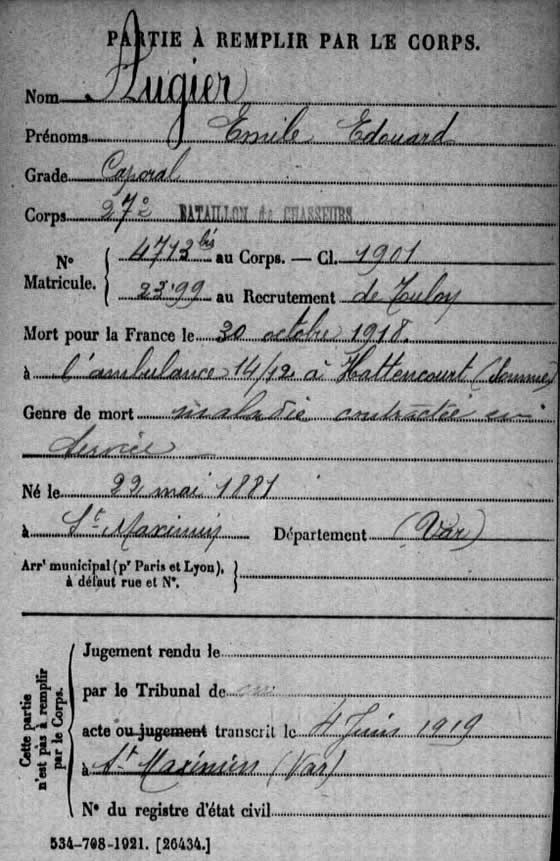 PARTIE À REMPLIR PAR LE CORPS.
Nom Augier
Prénoms Emile Edouard
Grade Caporal
Corps 27e BATAILLON de CHASSEURS
N° Matricule. { 4713 bis au Corps. — Cl. 1901
2399 au Recrutement de Toulon
Mort pour la France le 30 octobre 1918.
à l'ambulance 14/12 à Hattencourt (Somme)
Genre de mort maladie contractée en
service
Né le 22 mai 1881
à St Maximin Département (Var)
Arrt municipal (pr Paris et Lyon), à défaut rue et N°. }
Cette partie n'est pas à remplir par le Corps.
Jugement rendu le
par le Tribunal de
acte ou jugement transcrit le 4 Juin 1919
à St Maximin (Var)
N° du registre d'état civil
534-708-1921. [26434.]